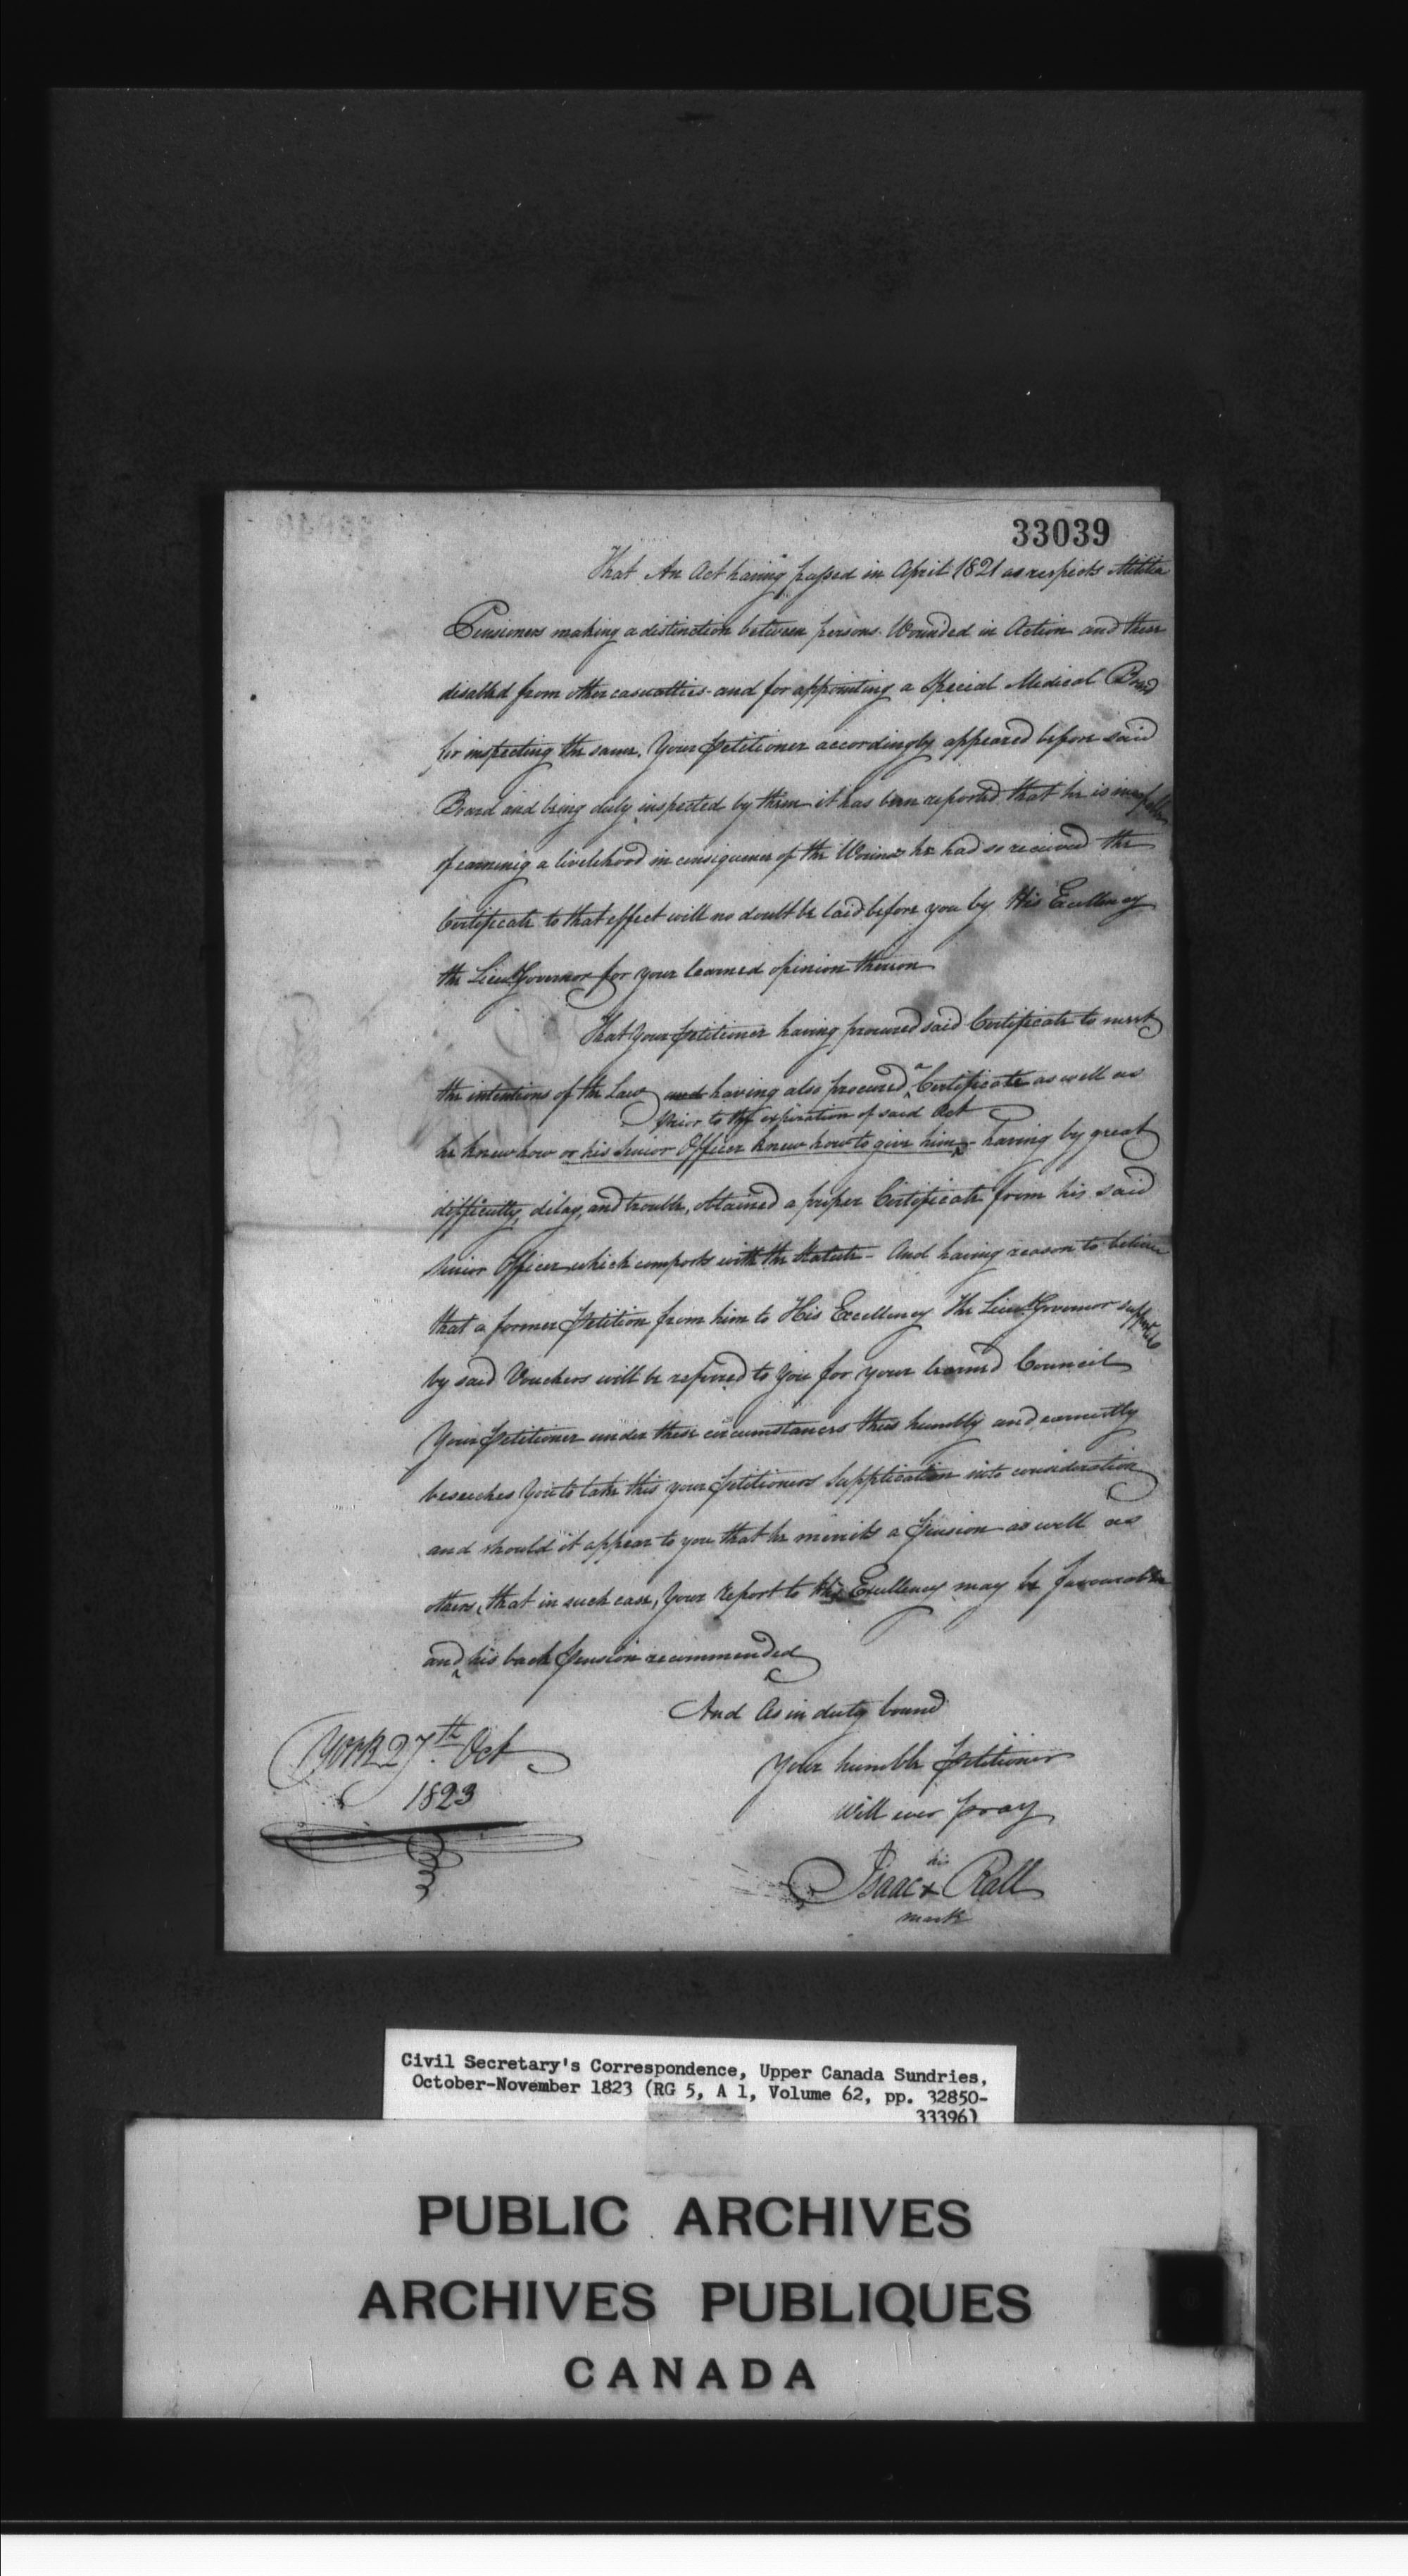 33039
That An Act having passed in April 1821 as respects Militia
Pensioners making a distinction between persons Wounded in Action and those
disabled from other casualties - and for appointing a Special Medical Board
for inspecting the same. Your Petitioner accordingly appeared before said
Board and being duly inspected by them it has been reported that he is incapable
of earning a livelihood in consequence of the Wound he had so received the
Certificate to that effect will no doubt be laid before you by His Excellency
the Lieut Governor for your learned opinion thereon
That Your Petitioner having procured said Certificate to meet
the intentions of the Law and having also procured a Certificate as well as
prior to the expiration of said Act
he knew how or his Senior Officer knew how to give him - having by great
difficulty, delay, and trouble, obtained a proper Certificate from his said
Senior Officer which comports with the Statute - And having reason to believe
that a former Petition from him to His Excellency The Lieut Governor supported
by said Vouchers will be referred to You for your learned Council
Your Petitioner under these circumstances thus humbly and earnestly
beseeches You to take this your Petitioners Supplication into consideration
and should it appear to you that he merits a Pension as well as
others, that in such case, Your Report to His Excellency may be favourable
and his back Pension recommended
And As in duty bound
Your humble Petitioner
Will ever pray
York 27th Oct
1823
his
Isaac x Rall
mark
Civil Secretary's Correspondence, Upper Canada Sundries,
October-November 1823 (RG 5, A 1, Volume 62, pp. 32850-
33396)
PUBLIC ARCHIVES
ARCHIVES PUBLIQUES
CANADA